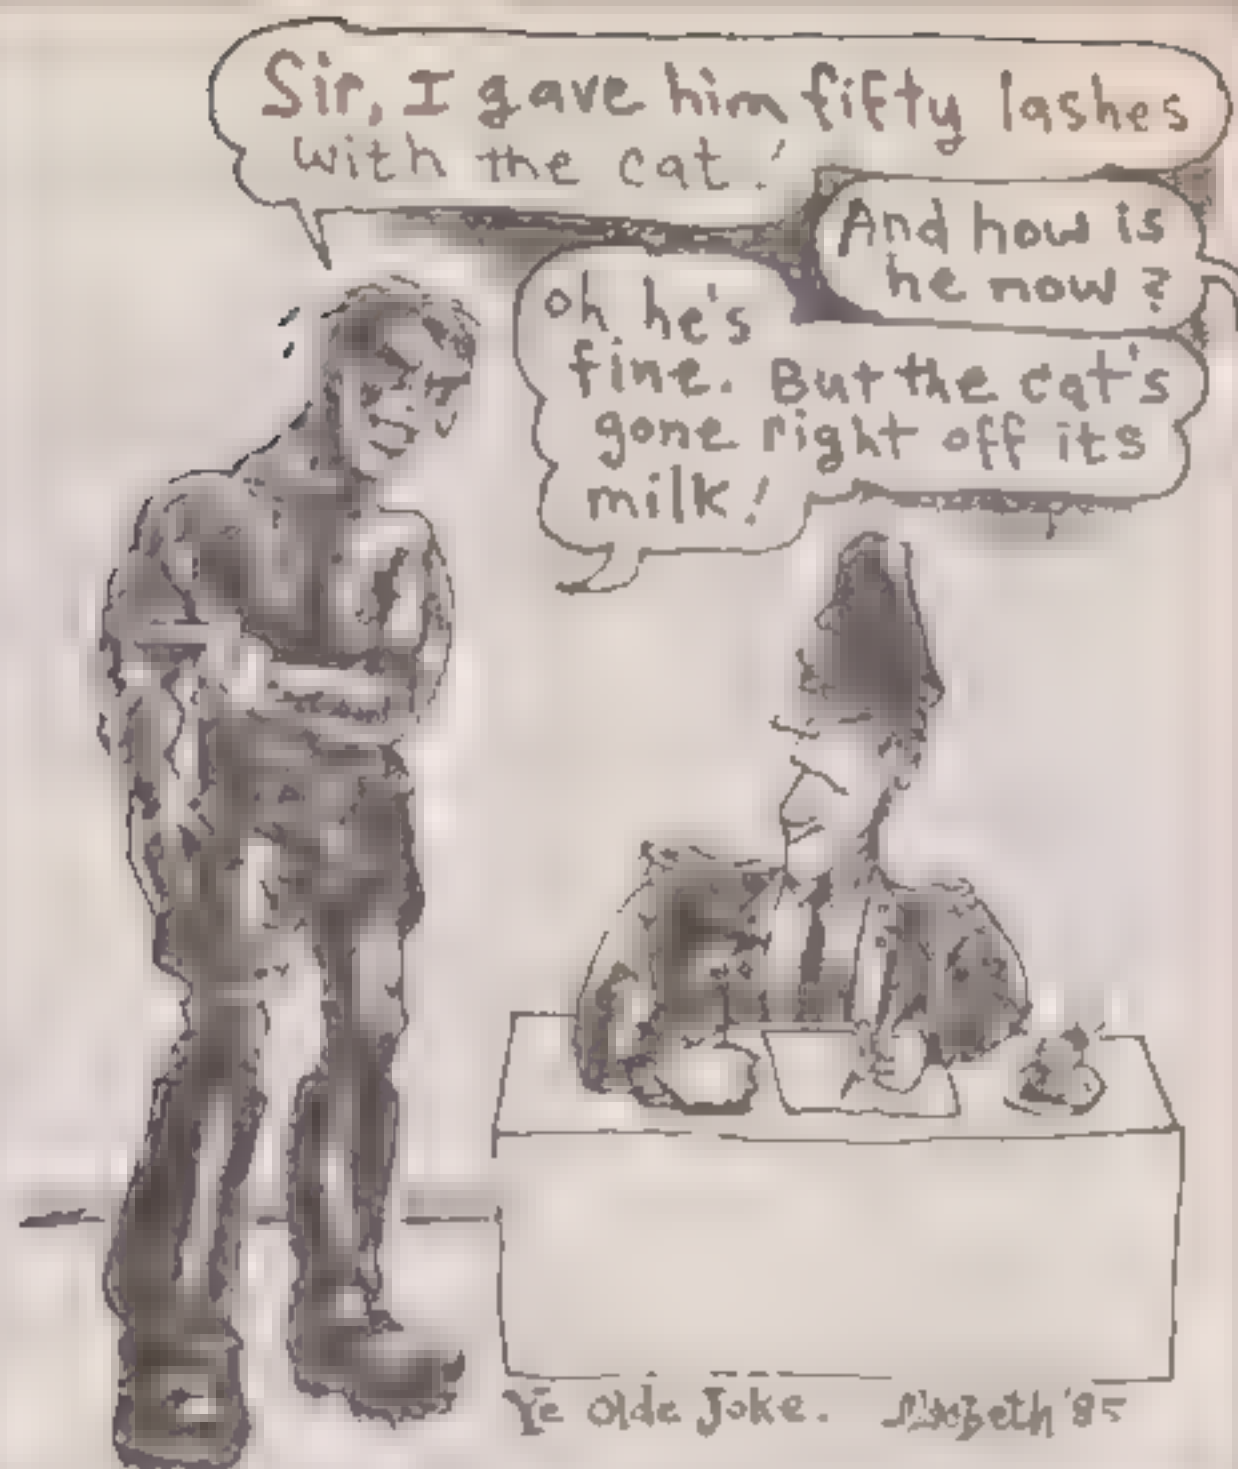 Sir, I gave him fifty lashes
with the cat!
And how is
he now?
oh he's
fine. But the cat's
gone right off its
milk!
Ye Olde Joke. '85